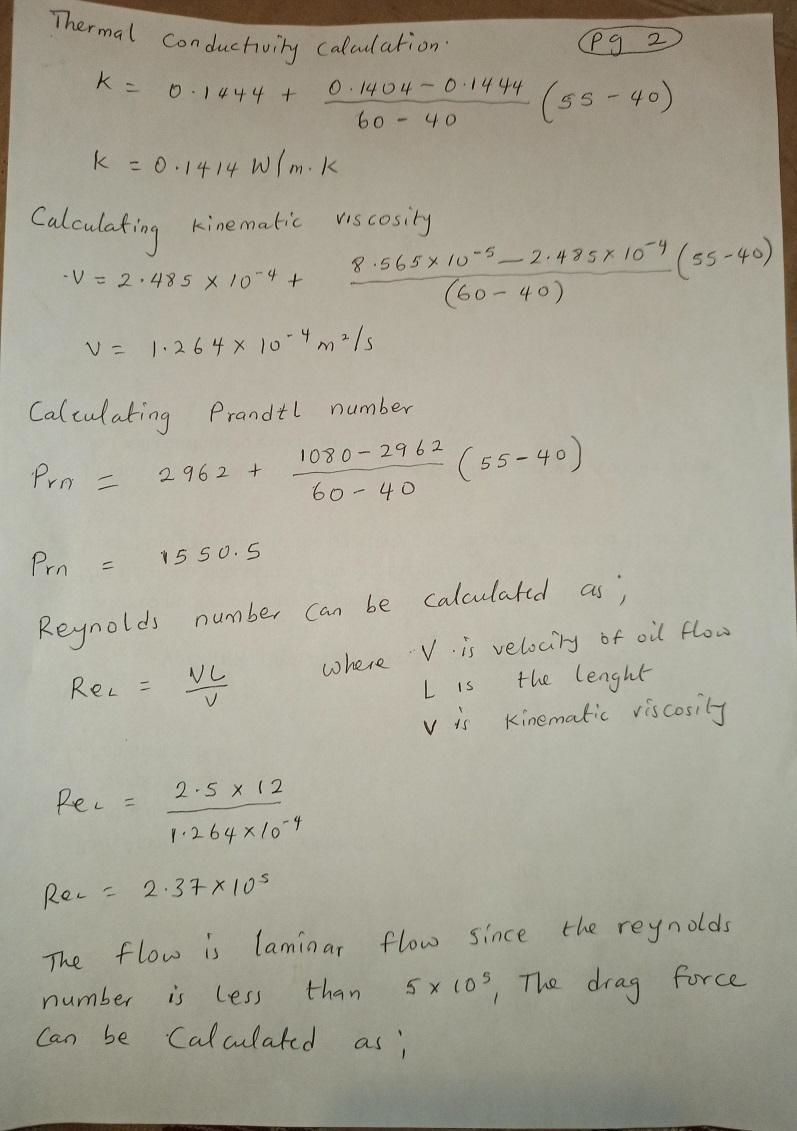 Thermal Conductivity Calculation. Pg 2
K = 0.1444 + (0.1404 - 0.1444)/(60 - 40) (55 - 40)
K = 0.1414 W/m.K
Calculating kinematic viscosity
V = 2.485 × 10⁻⁴ + (8.565 × 10⁻⁵ - 2.485 × 10⁻⁴)/(60 - 40) (55 - 40)
V = 1.264 × 10⁻⁴ m²/s
Calculating Prandtl number
Prn = 2962 + (1080 - 2962)/(60 - 40) (55 - 40)
Prn = 1550.5
Reynolds number can be calculated as;
Re_L = VL/V where V is velocity of oil flow
L is the lenght
V is Kinematic viscosity
Re_L = (2.5 × 12)/(1.264 × 10⁻⁴)
Re_L = 2.37 × 10⁵
The flow is laminar flow since the reynolds
number is less than 5 × 10⁵, The drag force
Can be Calculated as;